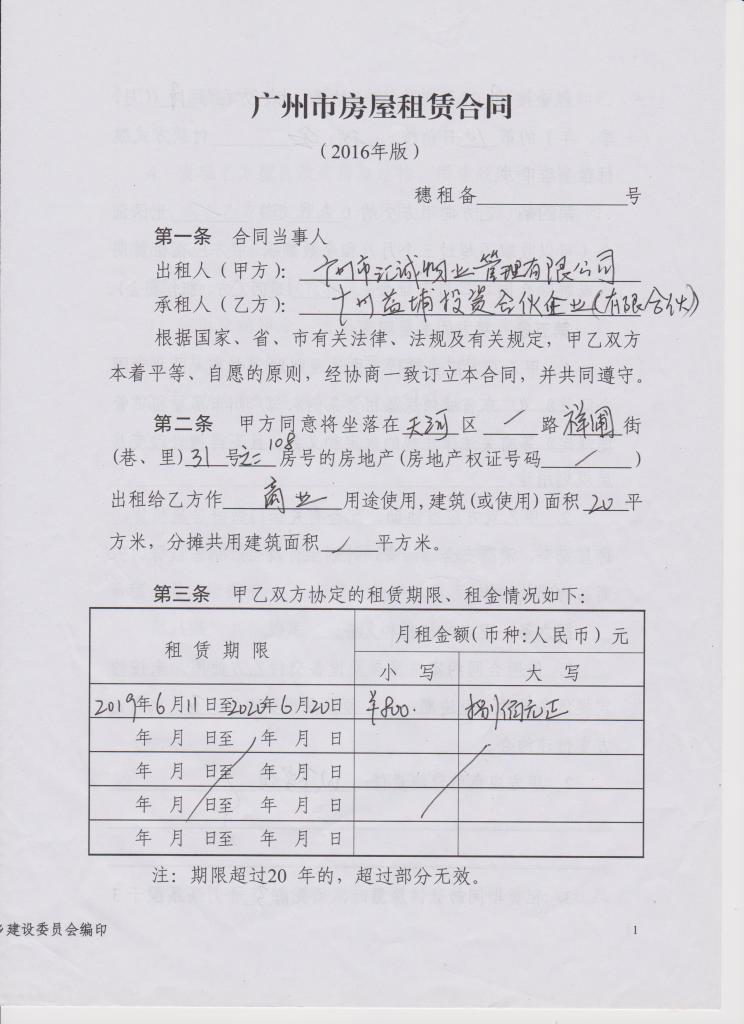 广州市房屋租赁合同
(2016年版)
穗租备 号
第一条 合同当事人
出租人(甲方): 广州市汇诚物业管理有限公司
承租人(乙方): 广州益埔投资合伙企业(有限合伙)
根据国家、省、市有关法律、法规及有关规定,甲乙双方
本着平等、自愿的原则,经协商一致订立本合同,并共同遵守。
第二条 甲方同意将坐落在天河区 / 路祥圃街
(巷、里)31号之二108房号的房地产(房地产权证号码 / )
出租给乙方作 商业 用途使用,建筑(或使用)面积 20 平
方米,分摊共用建筑面积 / 平方米。
第三条 甲乙双方协定的租赁期限、租金情况如下:
租赁期限 月租金额(币种:人民币)元
小写 大写
2019年6月11日至2020年6月20日 ¥800. 捌佰元正
年 月 日至 年 月 日
年 月 日至 年 月 日
年 月 日至 年 月 日
年 月 日至 年 月 日
注:期限超过20 年的,超过部分无效。
建设委员会编印 1